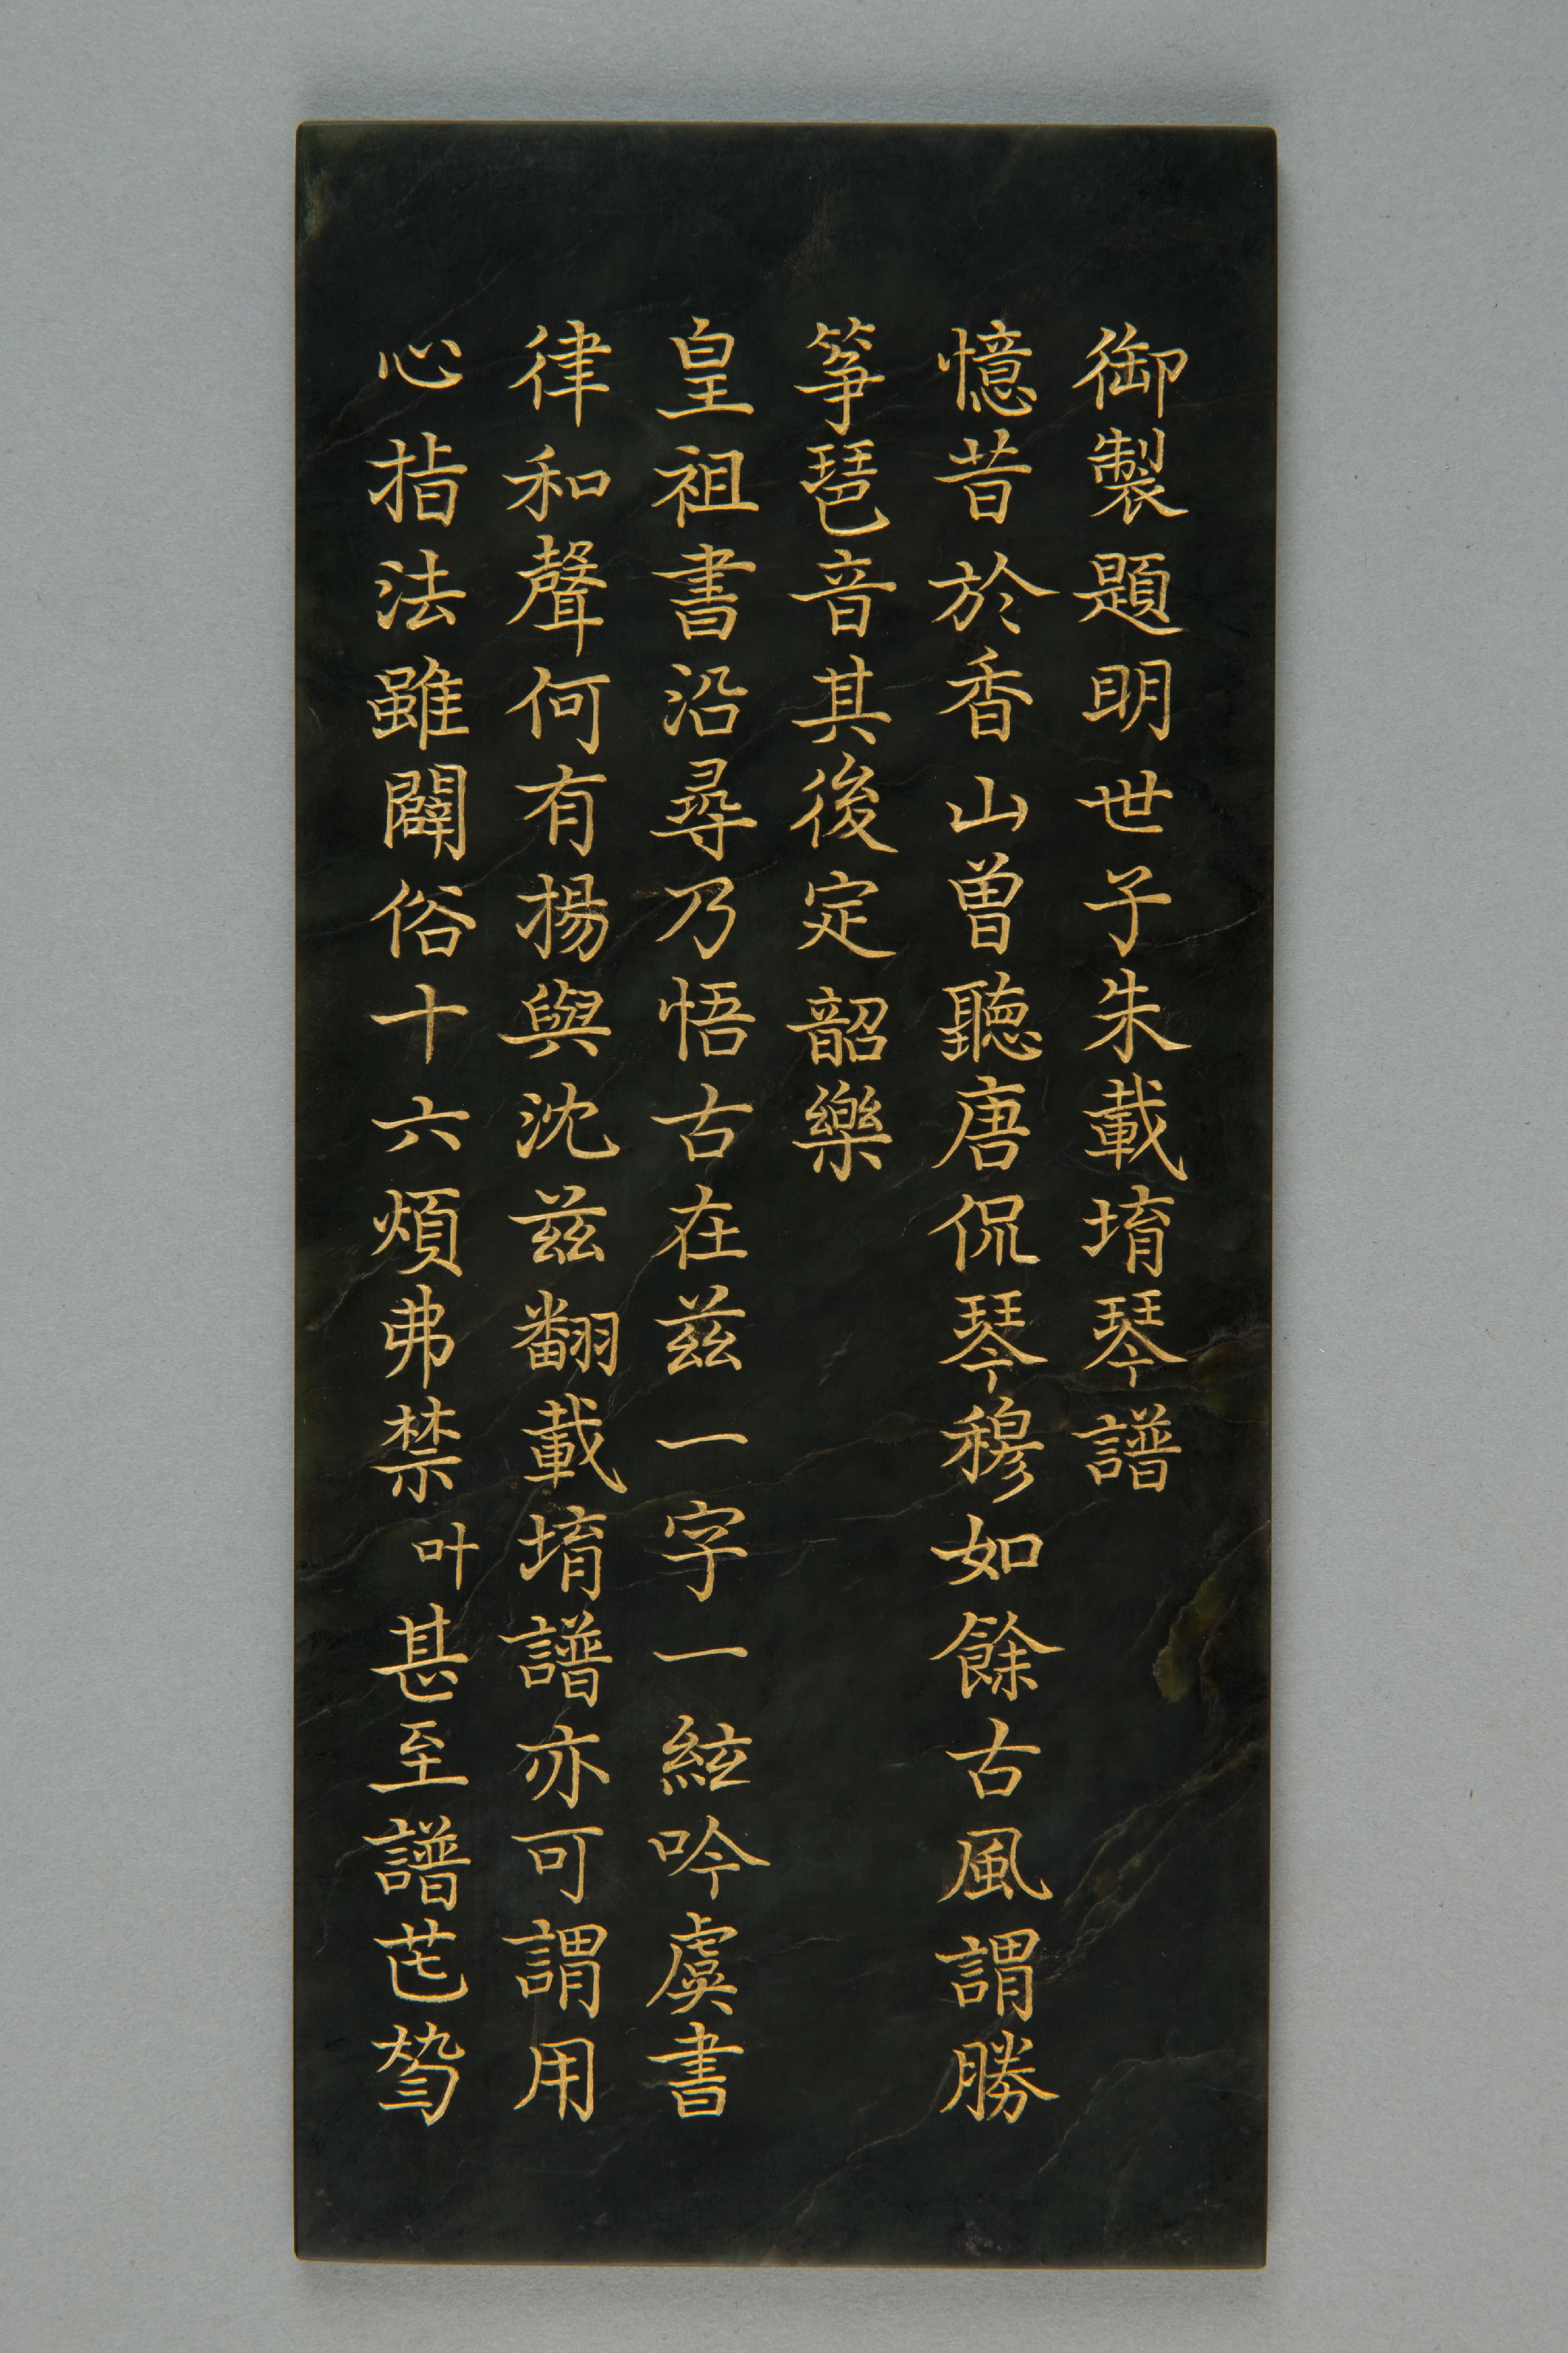 御製題明世子朱載堉琴譜
憶昔於香山曾聽唐侃琴穆如餘古風謂勝
箏琶音其後定韶樂
皇祖書沿尋乃悟古在茲一字一絃吟虞書
律和聲何有揚與沈茲翻載堉譜亦可謂用
心指法雖闢俗十六煩弗禁叶甚至譜芼